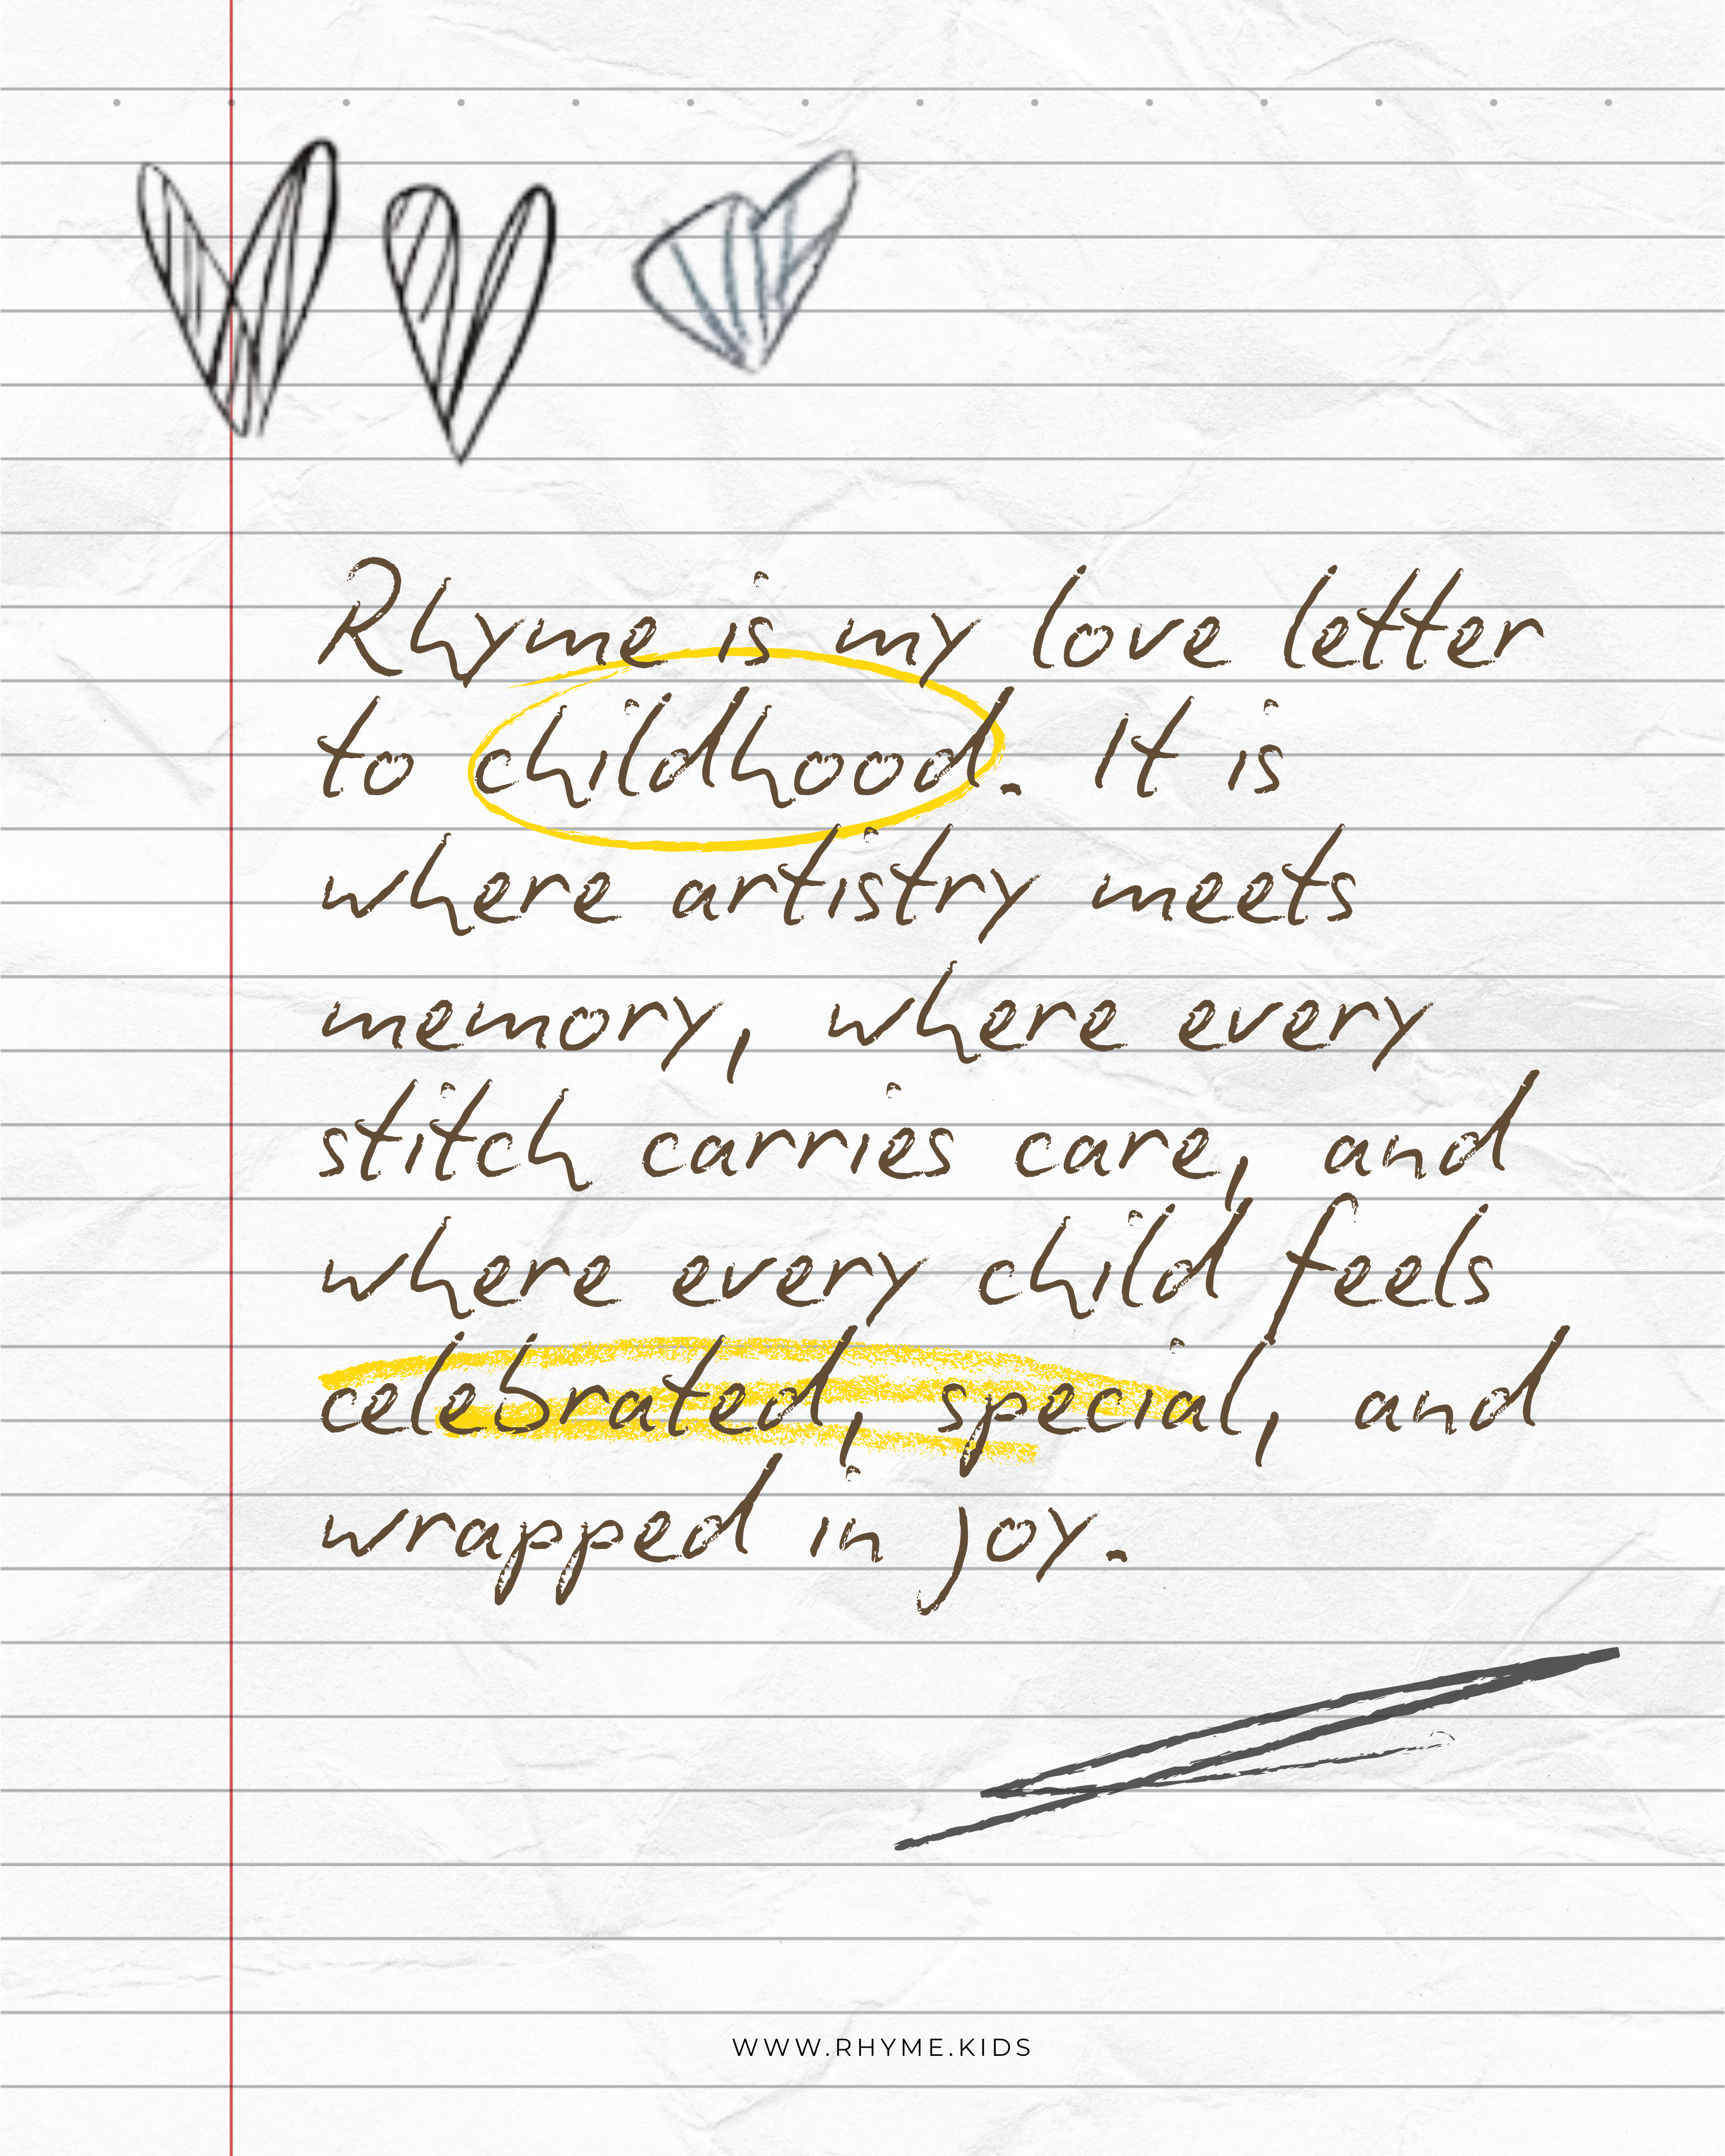 Rhyme is my love letter
to childhood. It is
where artistry meets
memory, where every
stitch carries care, and
where every child feels
celebrated, special, and
wrapped in joy.
WWW.RHYME.KIDS